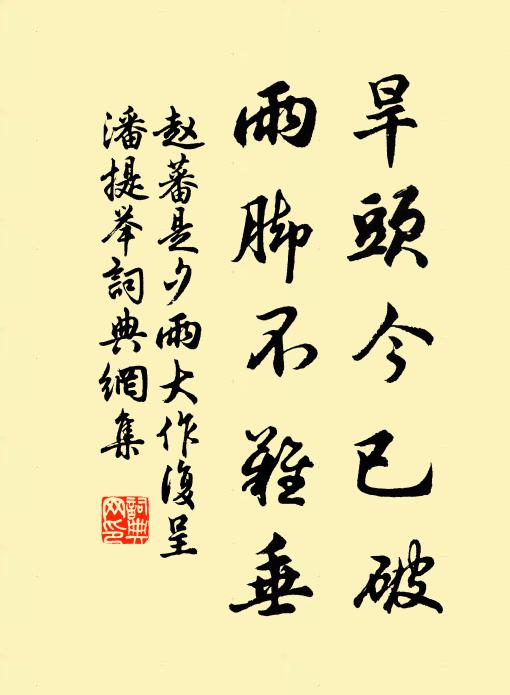 旱頭今已破
雨脚不難垂
赵蕃是夕雨大作復呈
潘提举詞典網集
詞典网印